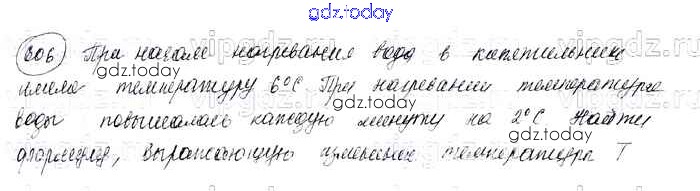 gdz.today
606 При начале нагревания вода в кипятильнике
gdz.today
имела температуру 6°С При нагревании температура
gdz.today
воды повышалась каждую минуту на 2°С Найти
gdz.today
формулу, выражающую изменение температуры T